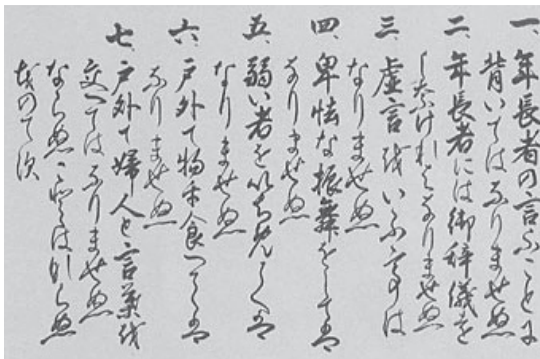 一、年長者の言ふことに
背いてはなりませぬ
二、年長者には御辞儀を
しなけれはなりませぬ
三、虚言をいふ事は
なりませぬ
四、卑怯な振舞をしては
なりませぬ
五、弱い者をいちめては
なりませぬ
六、戸外て物を食へては
なりませぬ
七、戸外て婦人と言葉を
交へてはなりませぬ
ならぬことはならぬ
ものてす